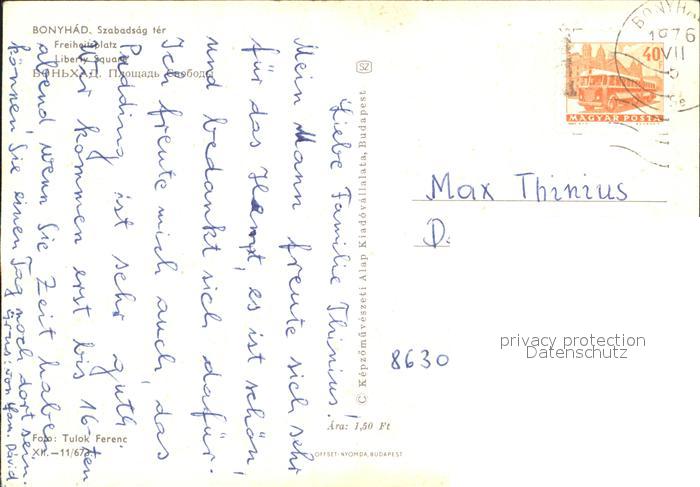 BONYHÁD. Szabadság tér
Freiheitsplatz
Liberty Square
БОНЬХАД. Площадь Свободы
Liebe Familie Thinius!
Mein Mann freute sich sehr
für das Hempt, es ist schön,
und bedankt sich dafür.
Ich freute mich auch, das
Pudding ist sehr guth.
Wir kommen erst bis 16-ten
abend wenn Sie Zeit haben
können Sie einen Tag noch dort sein.
Grus. von Fam. Dávid
Foto: Tulok Ferenc
XII.—11/67
SZ
© Képzőművészeti Alap Kiadóvállalata, Budapest
Ára: 1,50 Ft
OFFSET-NYOMDA, BUDAPEST
BONYHÁ
1976
VII
40
MAGYAR POSTA
Max Thinius
D.
8630
privacy protection
Datenschutz